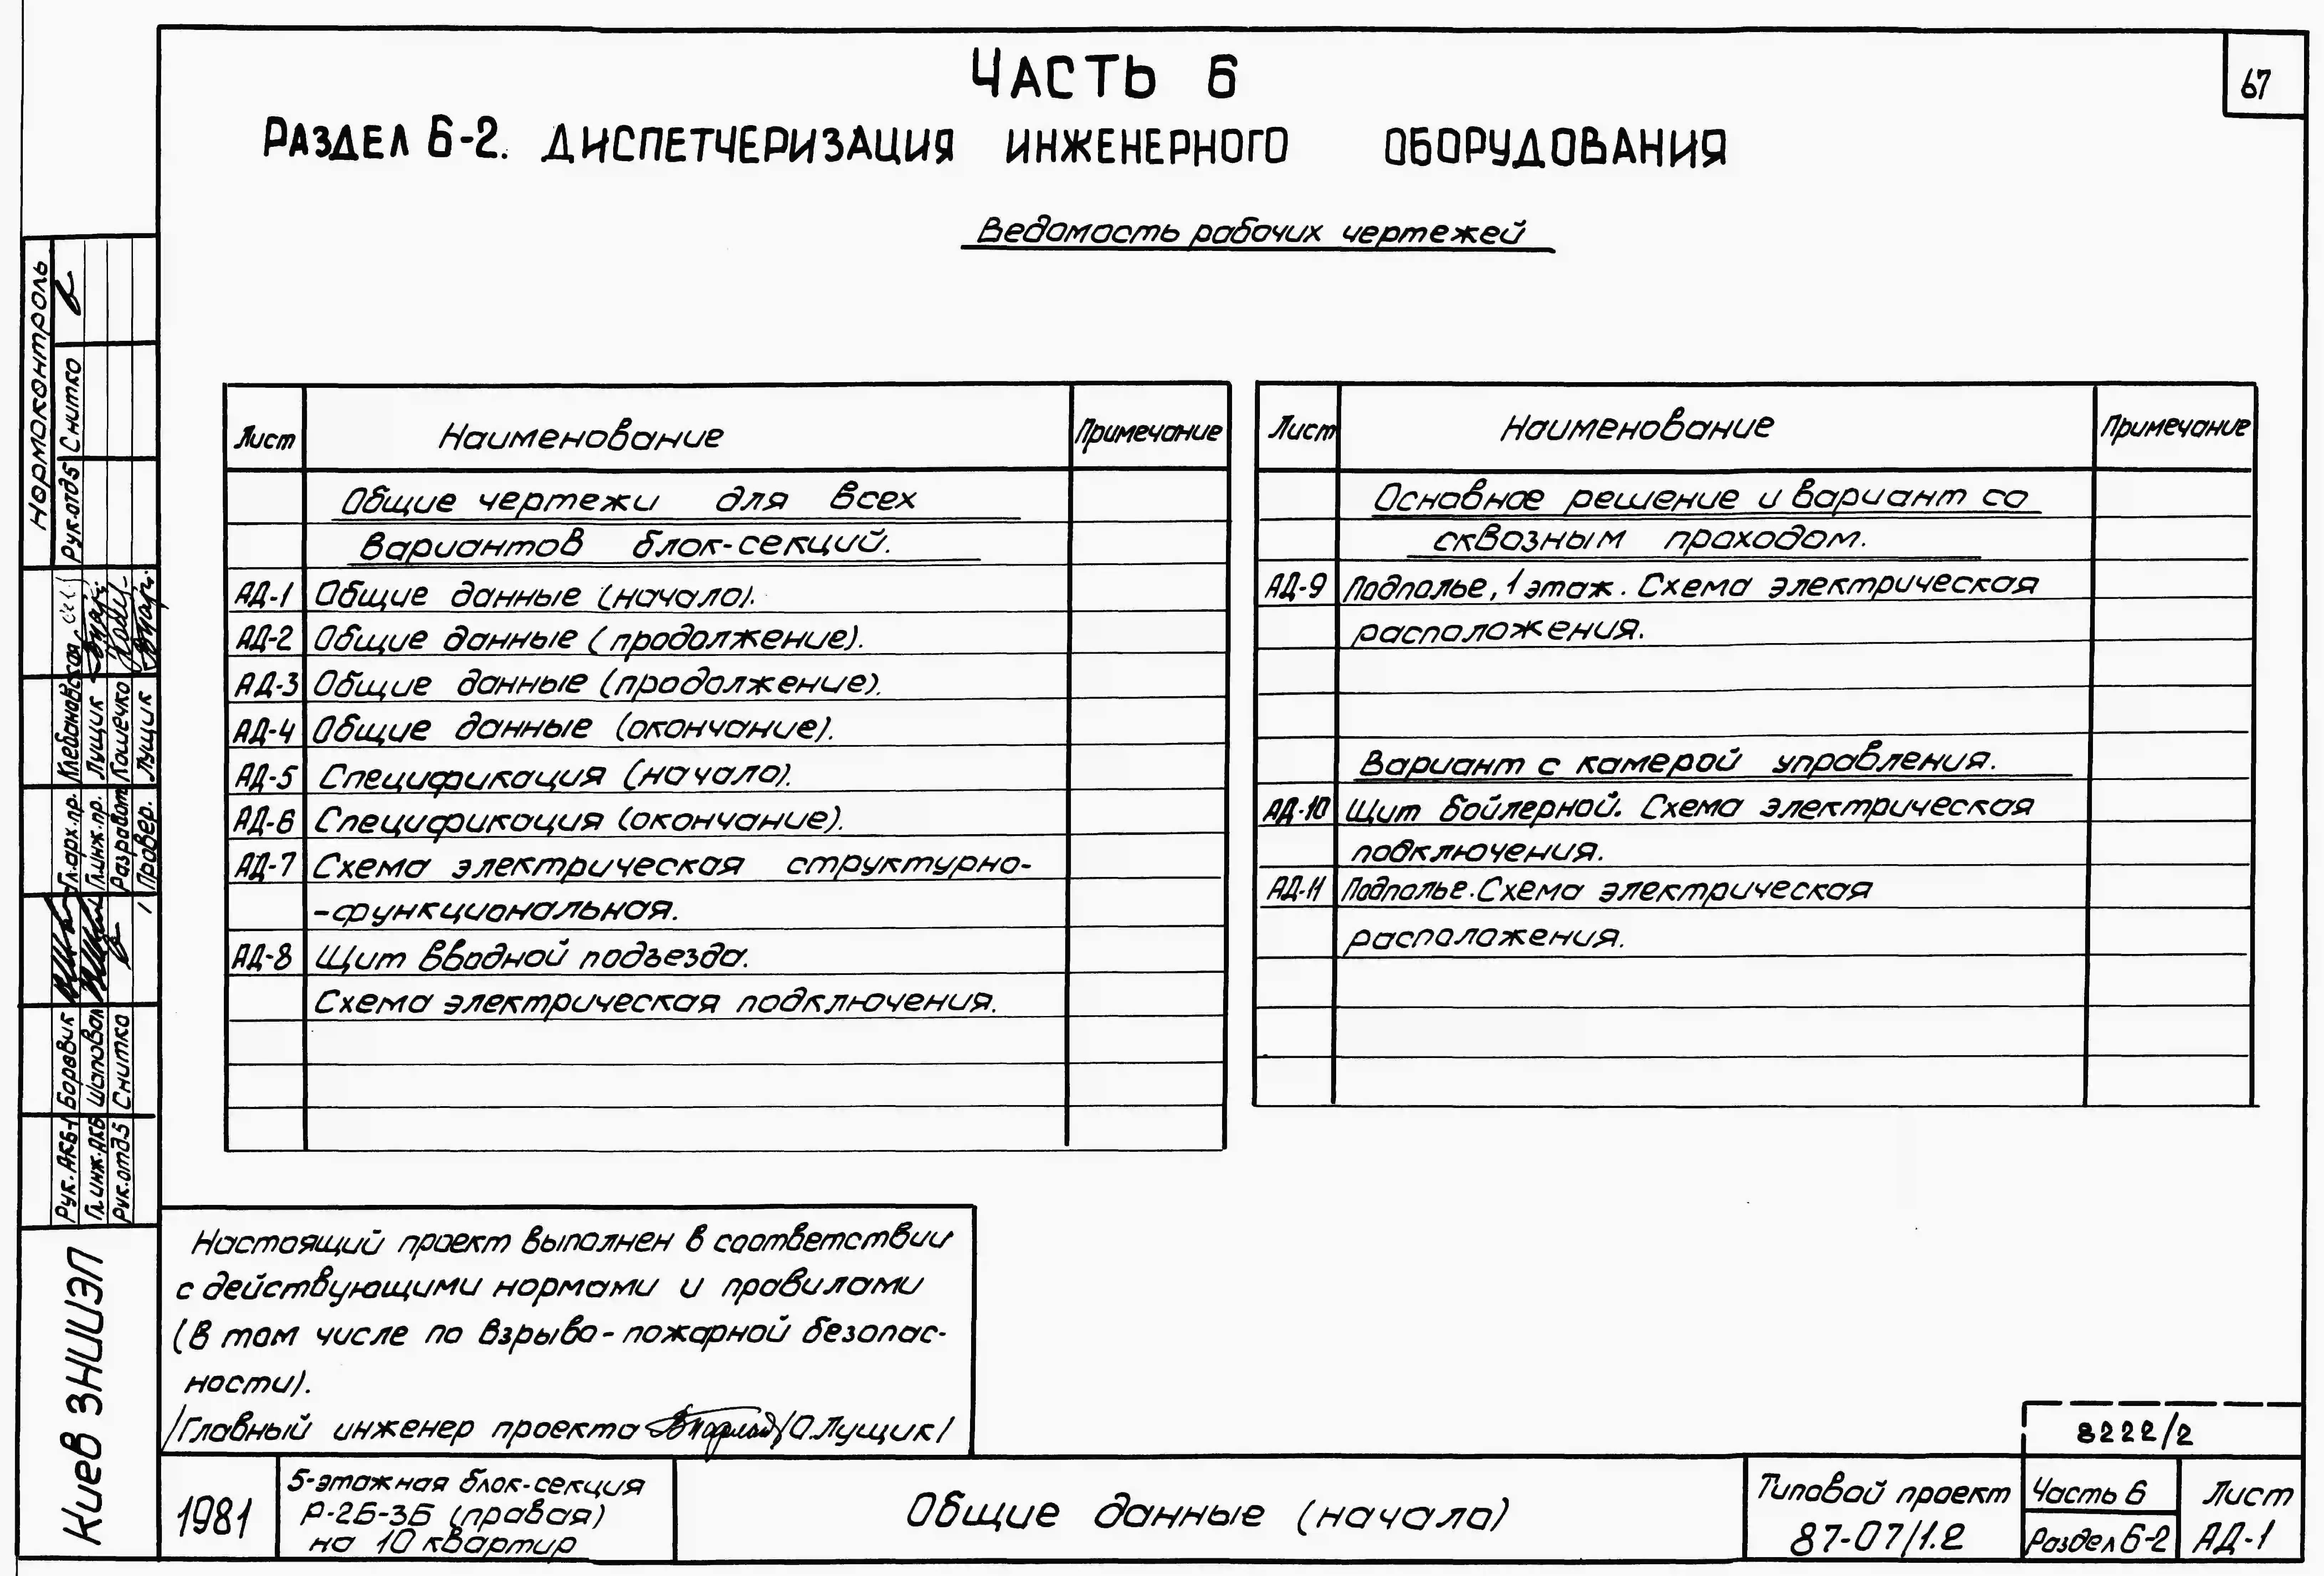 67
ЧАСТЬ 6
РАЗДЕЛ 6-2. ДИСПЕТЧЕРИЗАЦИЯ ИНЖЕНЕРНОГО ОБОРУДОВАНИЯ
Ведомость рабочих чертежей
Лист Наименование Примечание
Общие чертежи для всех
вариантов блок-секций.
АД-1 Общие данные (начало).
АД-2 Общие данные (продолжение).
АД-3 Общие данные (продолжение).
АД-4 Общие данные (окончание).
АД-5 Спецификация (начало).
АД-6 Спецификация (окончание).
АД-7 Схема электрическая структурно-
-функциональная.
АД-8 Щит вводной подъезда.
Схема электрическая подключения.
Лист Наименование Примечание
Основное решение и вариант со
сквозным проходом.
АД-9 Подполье, 1 этаж. Схема электрическая
расположения.
Вариант с камерой управления.
АД-10 Щит бойлерной. Схема электрическая
подключения.
АД-11 Подполье. Схема электрическая
расположения.
Настоящий проект выполнен в соответствии
с действующими нормами и правилами
(в том числе по взрыво-пожарной безопас-
ности).
/Главный инженер проекта /О.Лущик/
8222/2
1981
5-этажная блок-секция
Р-2Б-3Б (правая)
на 10 квартир
Общие данные (начало)
Типовой проект
87-07/1.2
Часть 6
Раздел 6-2
Лист
АД-1
Нормоконтроль
Рук.отд5 Снитко
Гл.арх.пр. Клебановская
Гл.инж.пр. Лущик
Разработ. Кошечко
Провер. Лущик
Рук. АКБ-1 Боровик
Гл.инж.АКБ Шаповал
Рук.отд5 Снитко
Киев ЗНИИЭП